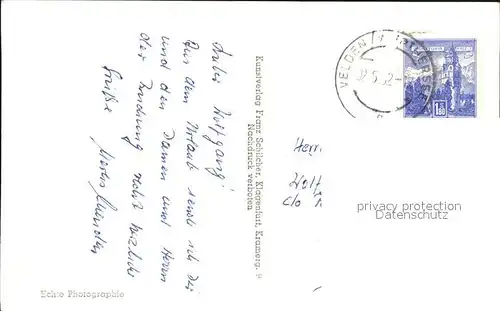 Lieber Wolfgang!
Aus dem Urlaub sende ich Dir
und den Damen und Herrn
der Zeichnung recht herzliche
Grüße
Kunstverlag Franz Schilcher, Klagenfurt, Kramerg.
Nachdruck verboten
VELDEN
1.80
Herr
Wolf
c/o
privacy protection
Datenschutz
Echte Photographie